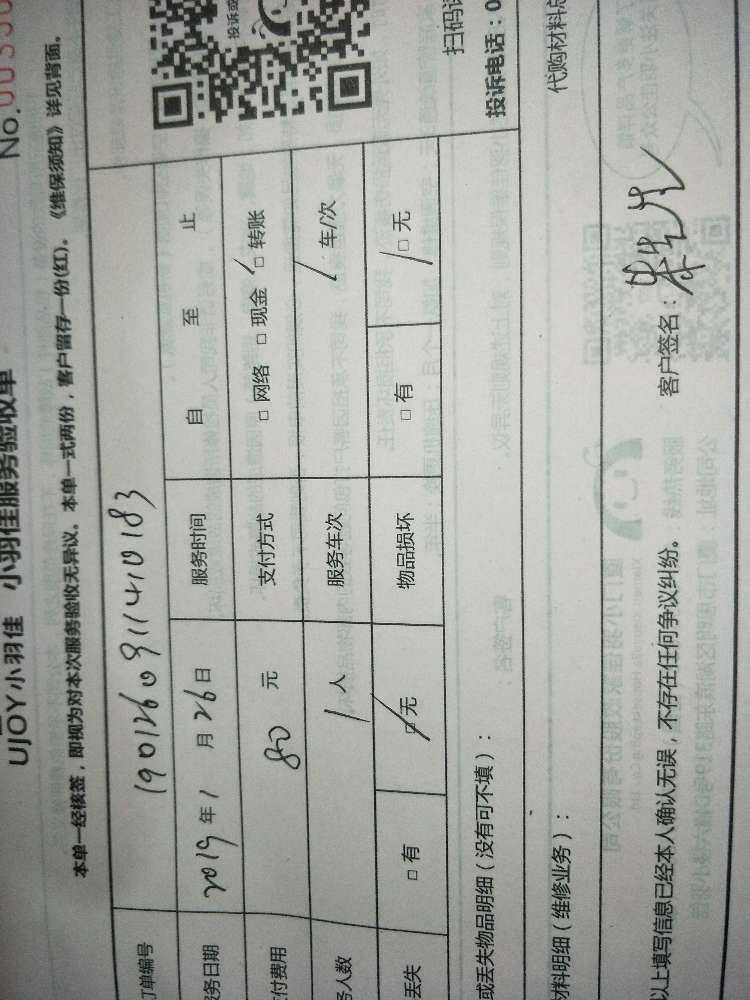 No.00350
UJOY小羽佳 小羽佳服务验收单
本单一经核签，即视为对本次服务验收无异议。本单一式两份，客户留存一份(红)。《维保须知》详见背面。
投诉或
扫码
投诉电话：0
订单编号 190126091140183
务日期 2019年1月26日 服务时间 自 至 止
付费用 80元 支付方式 □网络 □现金 □转账
务人数 1人 服务车次 / 车/次
丢失 □有 □无 物品损坏 □有 □无
或丢失物品明细（没有可不填）：
材料明细（维修业务）： 代购材料总
以上填写信息已经本人确认无误，不存在任何争议纠纷。 客户签名：